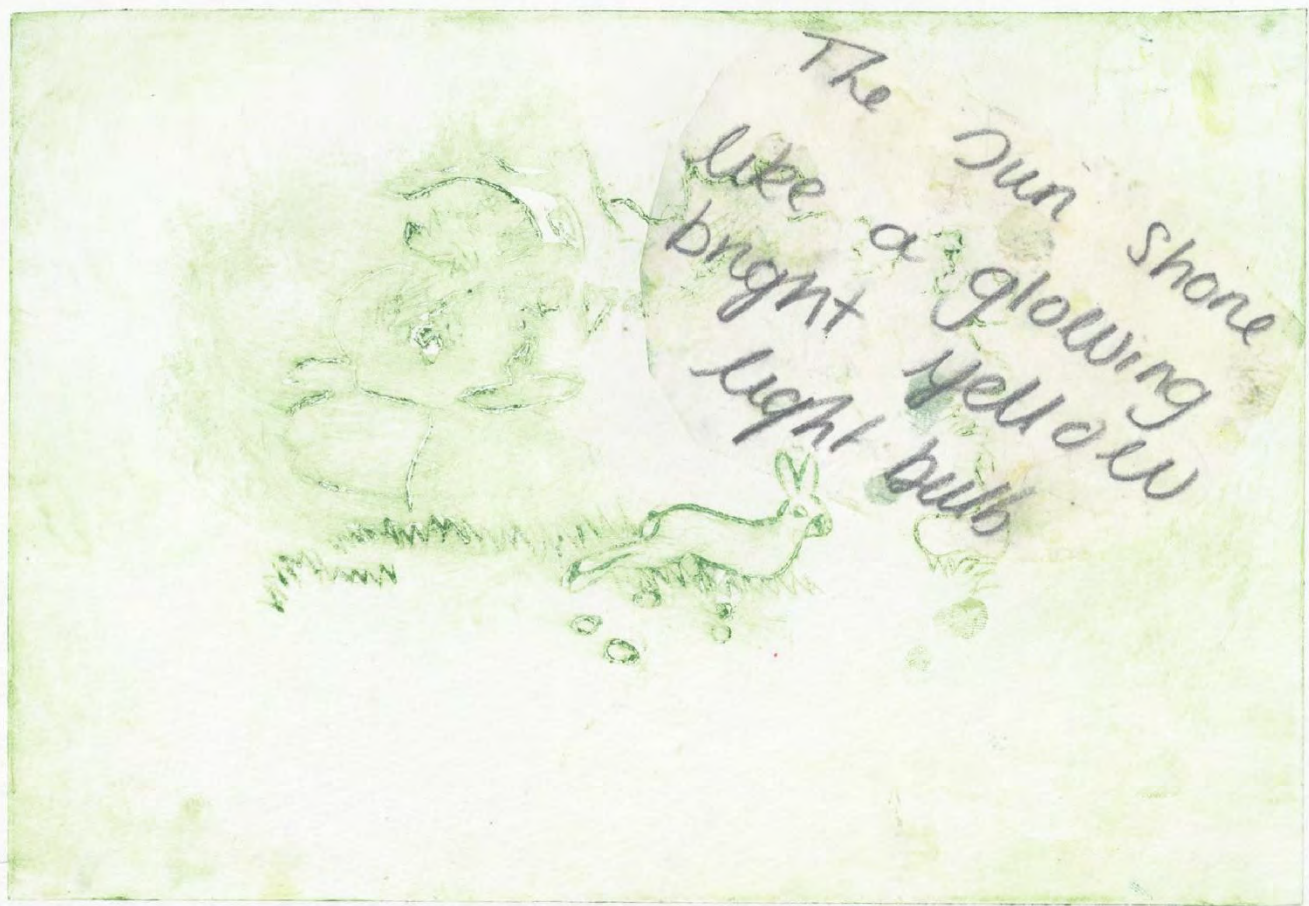 The sun shone
like a glowing
bright yellow
light bulb